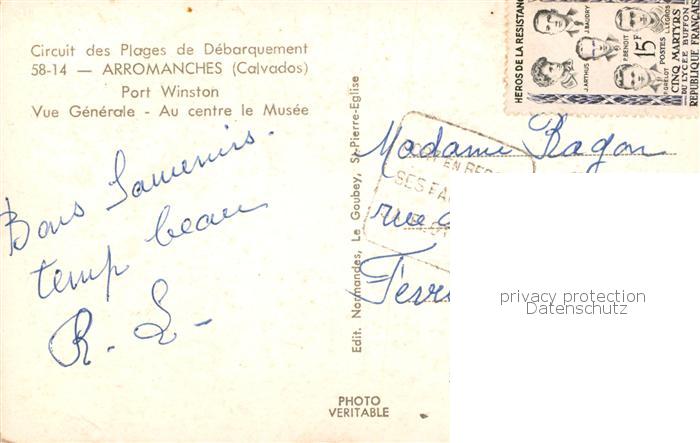 Circuit des Plages de Débarquement
58-14 — ARROMANCHES (Calvados)
Port Winston
Vue Générale - Au centre le Musée
Bons Souvenirs.
temp beau
R. L-
Edit. Normandes, Le Goubey, St-Pierre-Eglise
PHOTO
VERITABLE
HEROS DE LA RESISTANCE
J. BAUDRY
P. BENOIT
L. LEGROS
J. ARTHUS
P. GRELOT
15F
POSTES
CINQ MARTYRS
DU LYCEE BUFFON
REPUBLIQUE FRANÇAISE
EN
SES
Madame Ragon
rue
privacy protection
Datenschutz